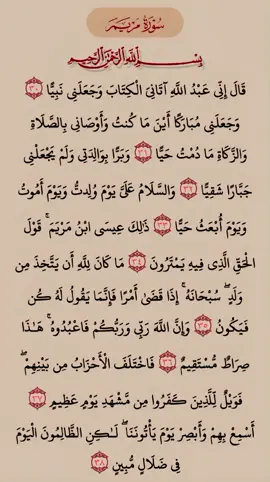 سُورَةُ مَرْيَمَ
بِسْمِ اللَّهِ الرَّحْمَٰنِ الرَّحِيمِ
قَالَ إِنِّي عَبْدُ اللَّهِ آتَانِيَ الْكِتَابَ وَجَعَلَنِي نَبِيًّا ٣٠
وَجَعَلَنِي مُبَارَكًا أَيْنَ مَا كُنتُ وَأَوْصَانِي بِالصَّلَاةِ
وَالزَّكَاةِ مَا دُمْتُ حَيًّا ٣١ وَبَرًّا بِوَالِدَتِي وَلَمْ يَجْعَلْنِي
جَبَّارًا شَقِيًّا ٣٢ وَالسَّلَامُ عَلَيَّ يَوْمَ وُلِدتُّ وَيَوْمَ أَمُوتُ
وَيَوْمَ أُبْعَثُ حَيًّا ٣٣ ذَٰلِكَ عِيسَى ابْنُ مَرْيَمَ ۚ قَوْلَ
الْحَقِّ الَّذِي فِيهِ يَمْتَرُونَ ٣٤ مَا كَانَ لِلَّهِ أَن يَتَّخِذَ مِن
وَلَدٍ ۖ سُبْحَانَهُ ۚ إِذَا قَضَىٰ أَمْرًا فَإِنَّمَا يَقُولُ لَهُ كُن
فَيَكُونُ ٣٥ وَإِنَّ اللَّهَ رَبِّي وَرَبُّكُمْ فَاعْبُدُوهُ ۚ هَٰذَا
صِرَاطٌ مُّسْتَقِيمٌ ٣٦ فَاخْتَلَفَ الْأَحْزَابُ مِن بَيْنِهِمْ ۖ
فَوَيْلٌ لِّلَّذِينَ كَفَرُوا مِن مَّشْهَدِ يَوْمٍ عَظِيمٍ ٣٧
أَسْمِعْ بِهِمْ وَأَبْصِرْ يَوْمَ يَأْتُونَنَا ۖ لَٰكِنِ الظَّالِمُونَ الْيَوْمَ
فِي ضَلَالٍ مُّبِينٍ ٣٨